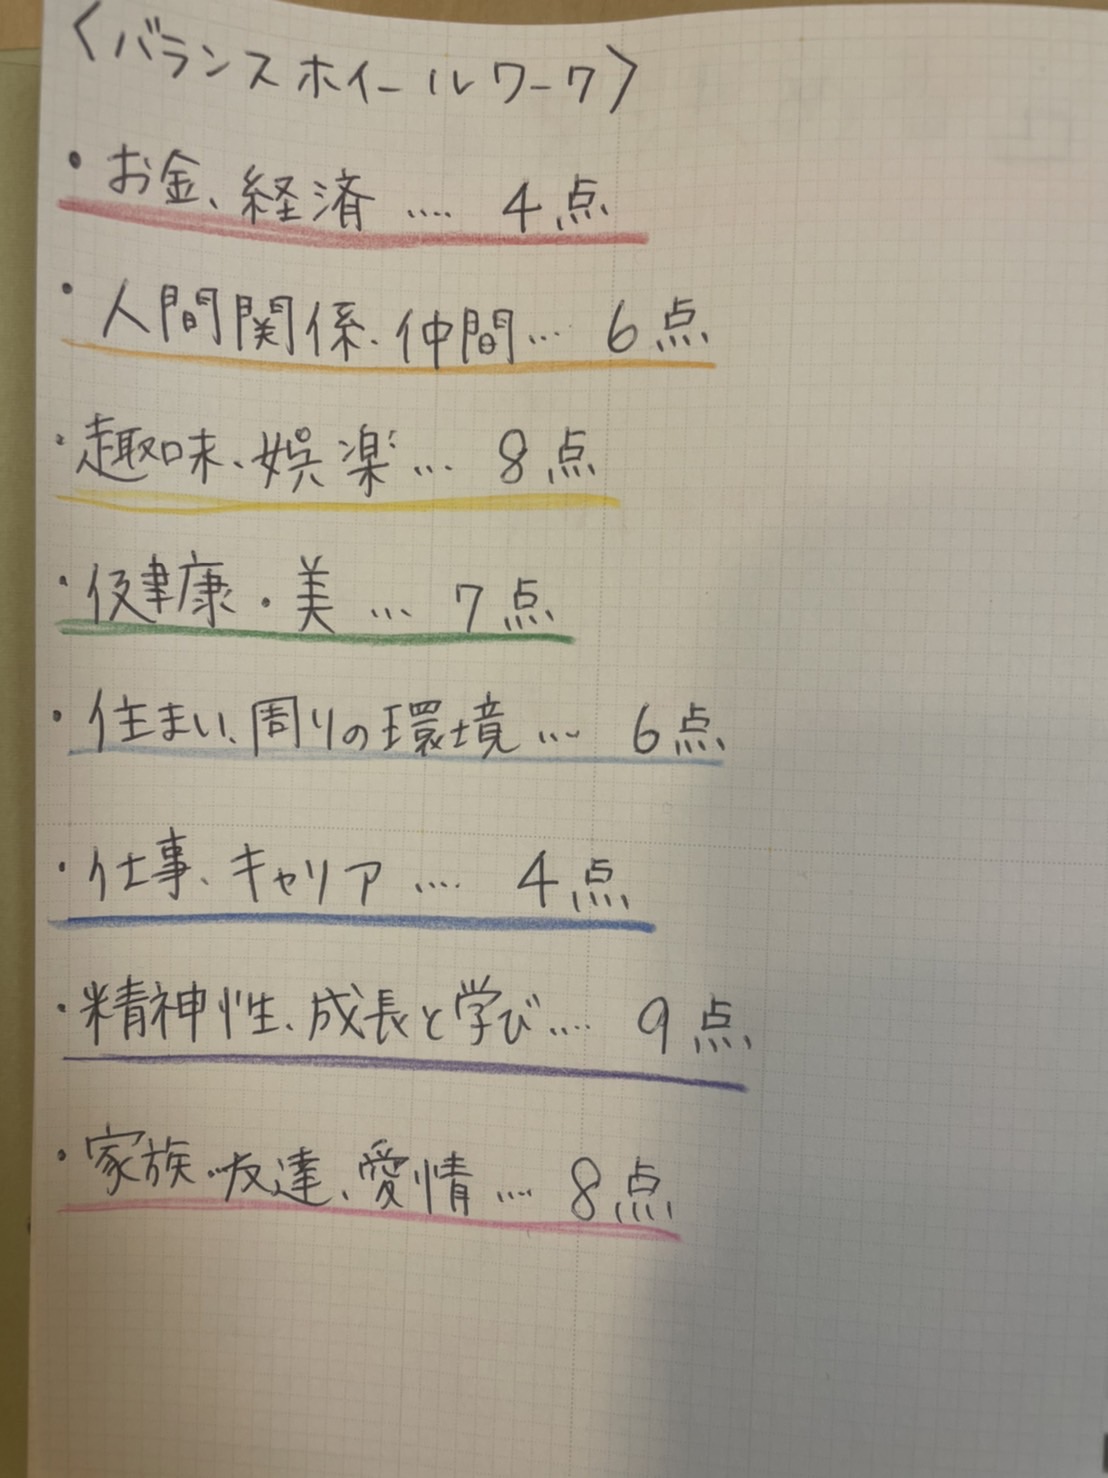 〈バランスホイールワーク〉
・お金、経済 .... 4点
・人間関係、仲間... 6点
・趣味、娯楽... 8点
・健康・美... 7点
・住まい、周りの環境... 6点
・仕事、キャリア.... 4点
・精神性、成長と学び.... 9点
・家族・友達、愛情.... 8点